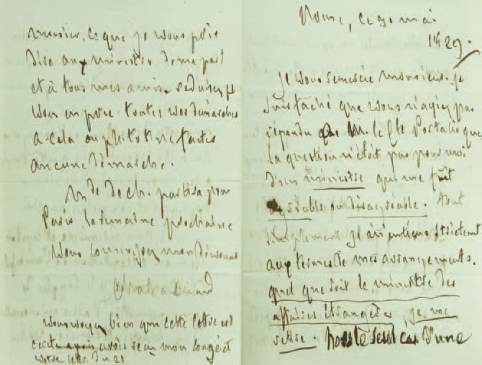 Rome, ce 30 mai
1829.
je vous remercie monsieur. je
suis faché que vous n'ayiez pas
répondu que M. le Cte Portalis que
la question n'étoit pas pour moi
d'un ministre qui me fût
agréable ou désagréable. tout
simplement je m'en tiens strictement
aux termes de mes arrangements.
quel que soit le ministre des
affaires étrangères, je me
retire. hors le seul cas d'une
monsieur, ce que je vous prie
dire aux ministres de ma part
et à tous mes amis. réduisez je
vous en prie toutes vos démarches
à cela ou plutôt ne faites
aucune démarche.
Mde de Ch. partira pour
Paris la semaine prochaine
Vous connoissez mon dévouement
Chateaubriand
vous voyez bien que cette lettre est
écrite après avoir reçu mon congé et
votre lettre du 21